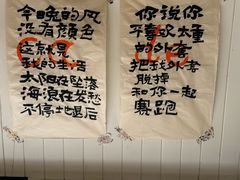 今晚的风
没有颜色
这就是
我的生活
太阳在坠落
海浪在发愁
不停地退后
你说你
不喜欢太重
的外套
把我外套
脱掉
和你一起
赛跑